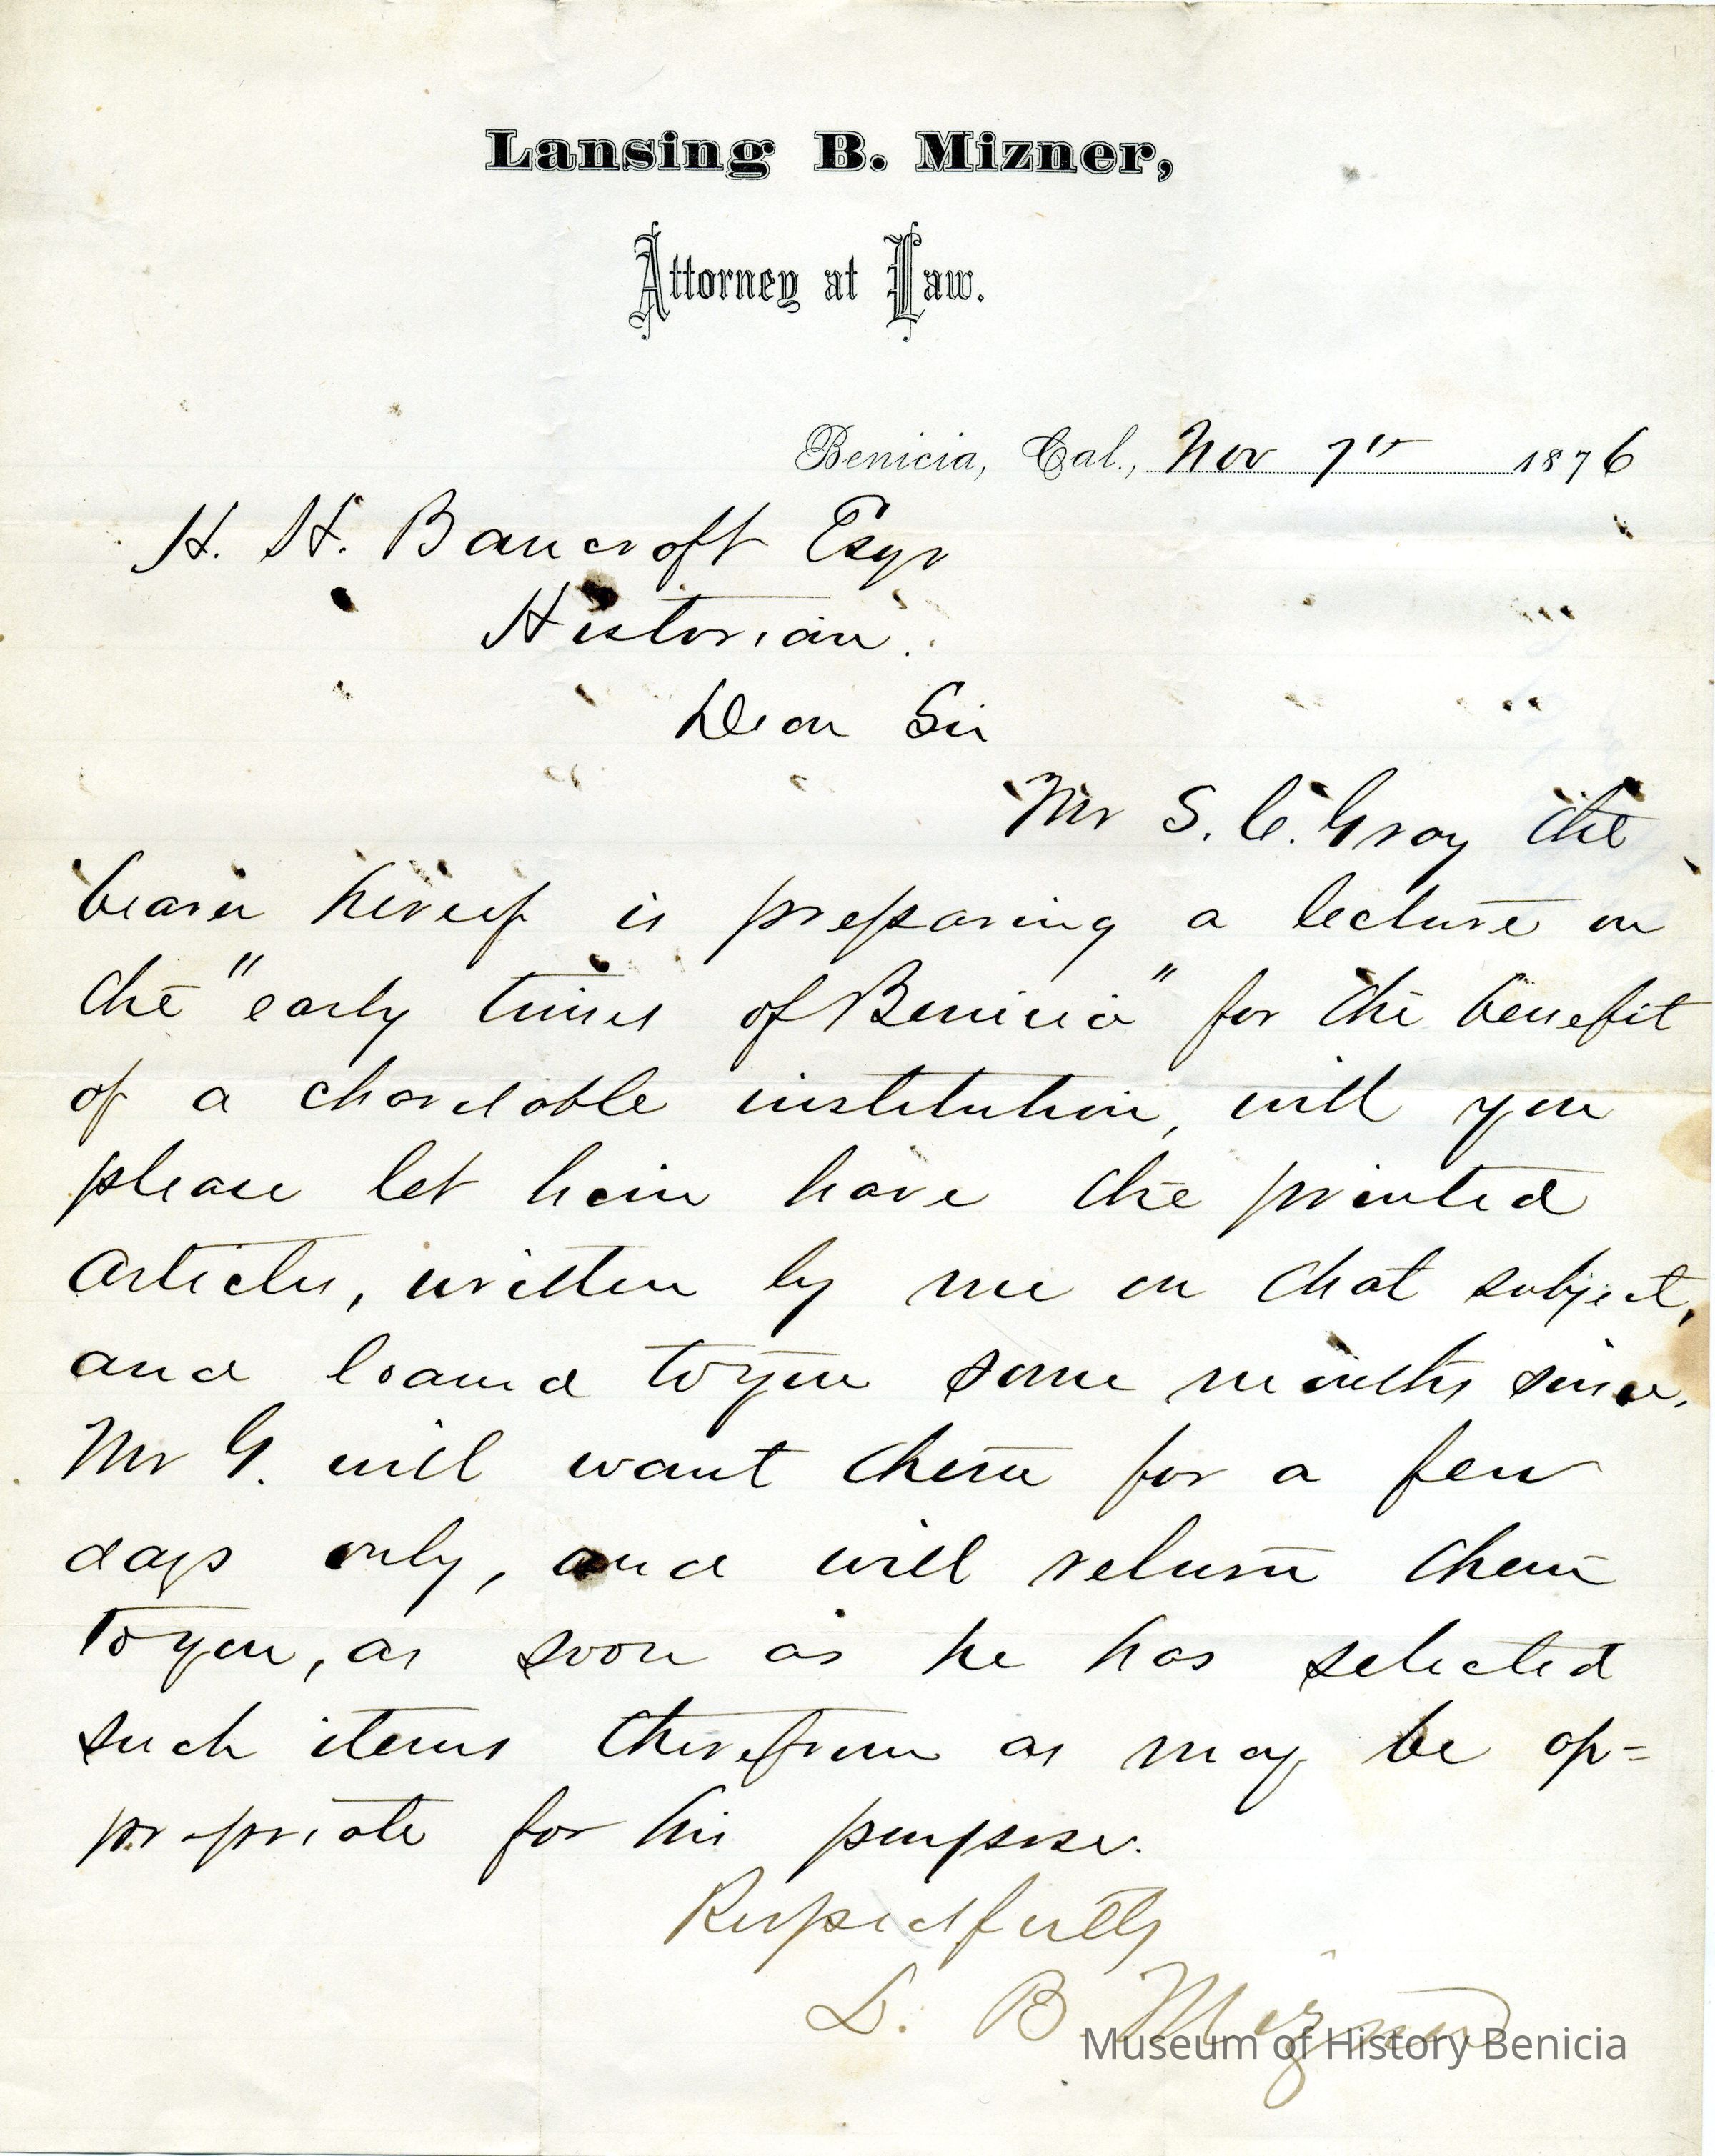 Lansing B. Mizner,
Attorney at Law.
Benicia, Cal., Nov 7th 1876
H. H. Bancroft Esqr
Historian.
Dear Sir
Mr S. C. Gray the
bearer hereof is preparing a lecture on
the "early times of Benicia" for the benefit
of a charitable institution, will you
please let him have the printed
articles, written by me on that subject,
and loaned to you some months since.
Mr G. will want them for a few
days only, and will return them
to you, as soon as he has selected
such items therefrom as may be ap=
propriate for his purpose.
Respectfully
L. B Mizner
Museum of History Benicia